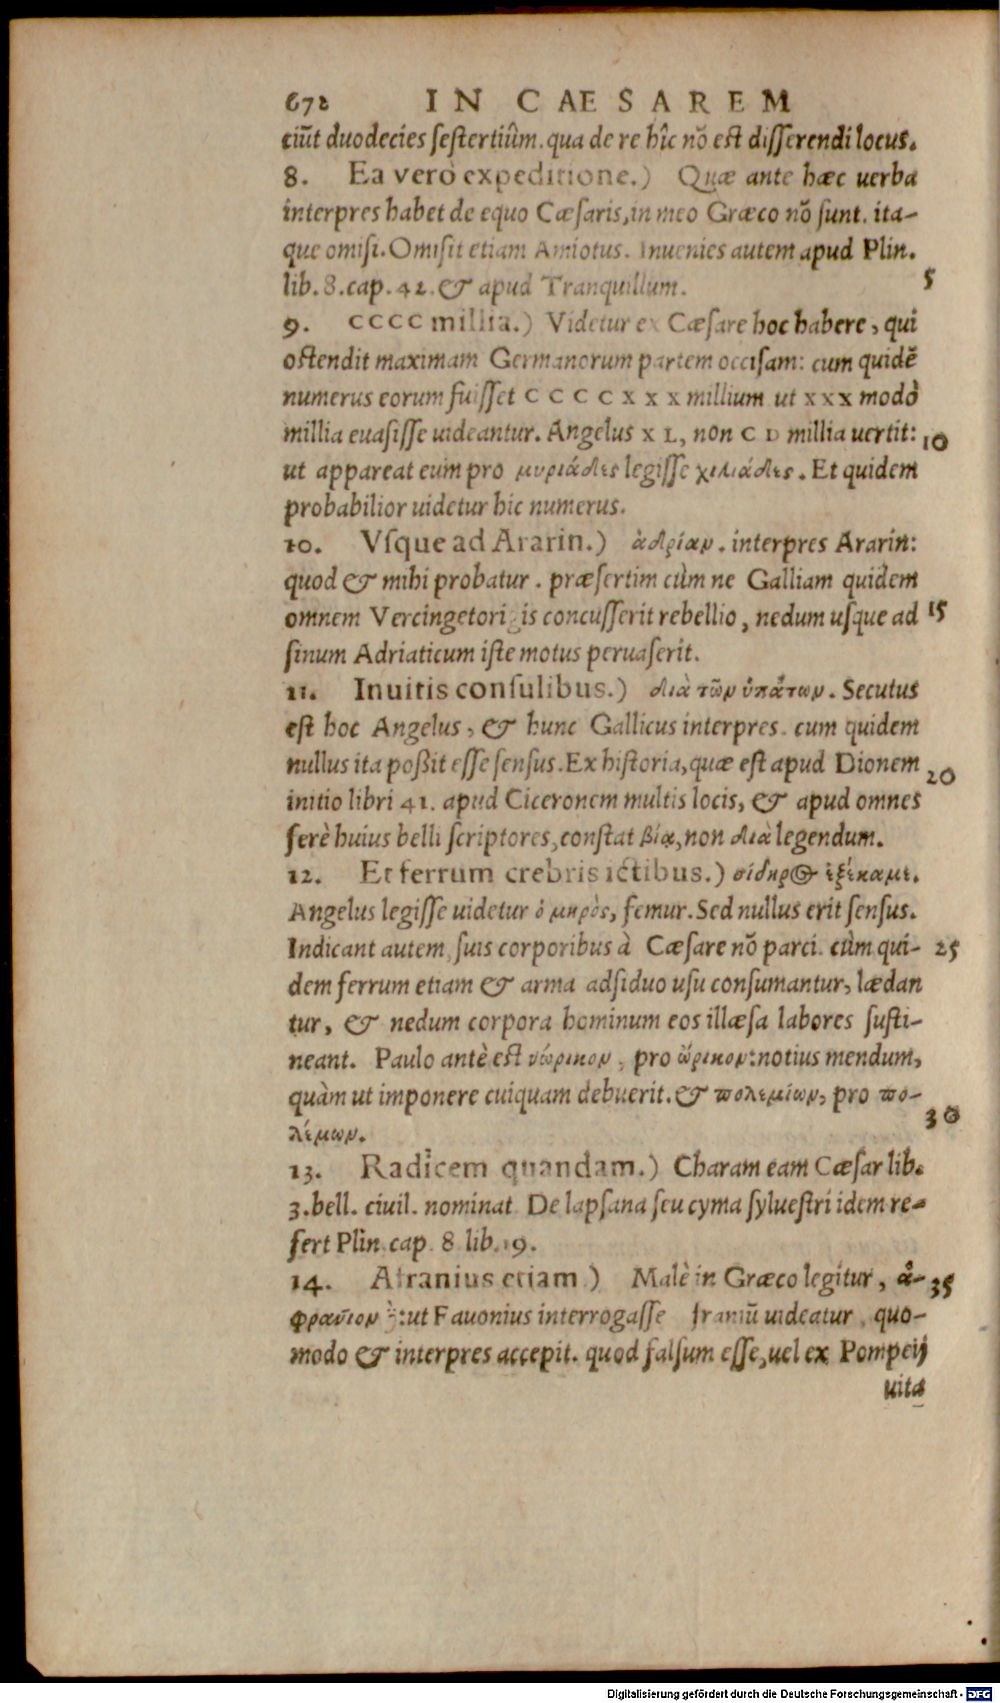 672 IN CAESAREM
ciũt duodecies ſeſtertiûm. qua de re hîc nõ eſt diſſerendi locus.
8. Ea verò expeditione.) Quæ ante hæc uerba
interpres habet de equo Cæſaris, in meo Græco nõ ſunt. ita-
que omiſi. Omiſit etiam Amiotus. Inuenies autem apud Plin.
lib. 8. cap. 42. & apud Tranquillum. 5
9. CCCC millia.) Videtur ex Cæſare hoc habere, qui
oſtendit maximam Germanorum partem occiſam: cum quidẽ
numerus eorum fuiſſet CCCCXXX millium ut XXX modò
millia euaſiſſe uideantur. Angelus XL, non CD millia uertit: 10
ut appareat eum pro μυριάδες legiſſe χιλιάδες. Et quidem
probabilior uidetur hic numerus.
10. Vſque ad Ararin.) ἀδρίαν. interpres Ararin:
quod & mihi probatur. præſertim cùm ne Galliam quidem
omnem Vercingetorigis concuſſerit rebellio, nedum uſque ad 15
ſinum Adriaticum iſte motus peruaſerit.
11. Inuitis conſulibus.) διὰ τῶν ὑπάτων. Secutus
eſt hoc Angelus, & hunc Gallicus interpres. cum quidem
nullus ita poßit eſſe ſenſus. Ex hiſtoria, quæ eſt apud Dionem 20
initio libri 41. apud Ciceronem multis locis, & apud omnes
ferè huius belli ſcriptores, conſtat βίᾳ, non διὰ legendum.
12. Et ferrum crebris ictibus.) σίδηρος ἐξέκαμε.
Angelus legiſſe uidetur ὁ μηρὸς, femur. Sed nullus erit ſenſus.
Indicant autem, ſuis corporibus à Cæſare nõ parci. cùm qui- 25
dem ferrum etiam & arma adſiduo uſu conſumantur, lædan
tur, & nedum corpora hominum eos illæſa labores ſuſti-
neant. Paulo antè eſt νώρικον, pro ὤρικον: notius mendum,
quàm ut imponere cuiquam debuerit. & πολεμίων, pro πο- 30
λέμων.
13. Radicem quandam.) Charam eam Cæſar lib.
3. bell. ciuil. nominat. De lapſana ſeu cyma ſylueſtri idem re-
fert Plin. cap. 8 lib. 19.
14. Afranius etiam.) Malè in Græco legitur, ἀ- 35
φρανίον : ut Fauonius interrogaſſe franiũ uideatur, quo-
modo & interpres accepit. quod falſum eſſe, uel ex Pompeij
uita
Digitalisierung gefördert durch die Deutsche Forschungsgemeinschaft - DFG